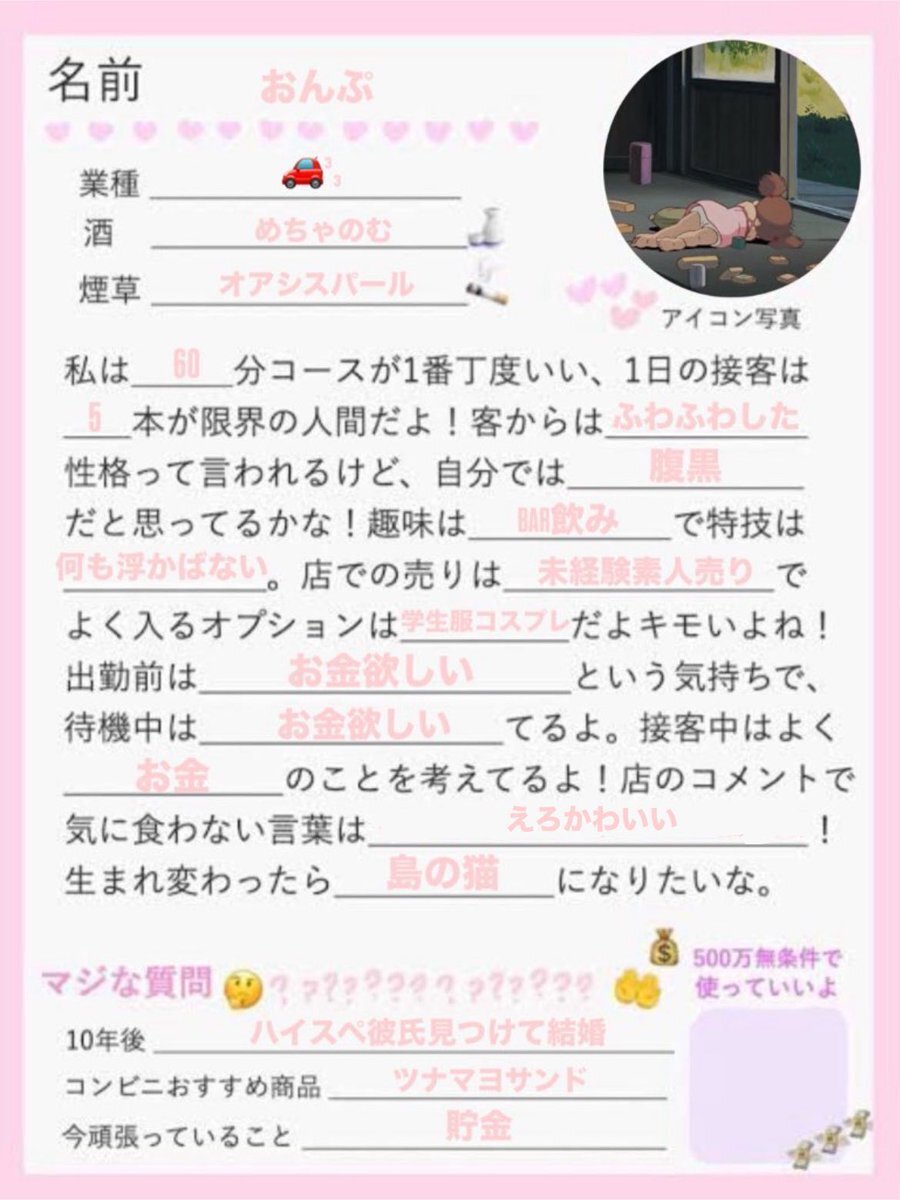 名前 おんぷ
業種 🚗 3 3
酒 めちゃのむ
煙草 オアシスパール
アイコン写真
私は60分コースが1番丁度いい、1日の接客は
5本が限界の人間だよ！客からはふわふわした
性格って言われるけど、自分では腹黒
だと思ってるかな！趣味はBAR飲みで特技は
何も浮かばない。店での売りは未経験素人売りで
よく入るオプションは学生服コスプレだよキモいよね！
出勤前はお金欲しいという気持ちで、
待機中はお金欲しいてるよ。接客中はよく
お金のことを考えてるよ！店のコメントで
気に食わない言葉はえろかわいい！
生まれ変わったら島の猫になりたいな。
マジな質問🤔？？？？？？？？？？？？？？？
💰500万無条件で
🤲使っていいよ
10年後 ハイスペ彼氏見つけて結婚
コンビニおすすめ商品 ツナマヨサンド
今頑張っていること 貯金